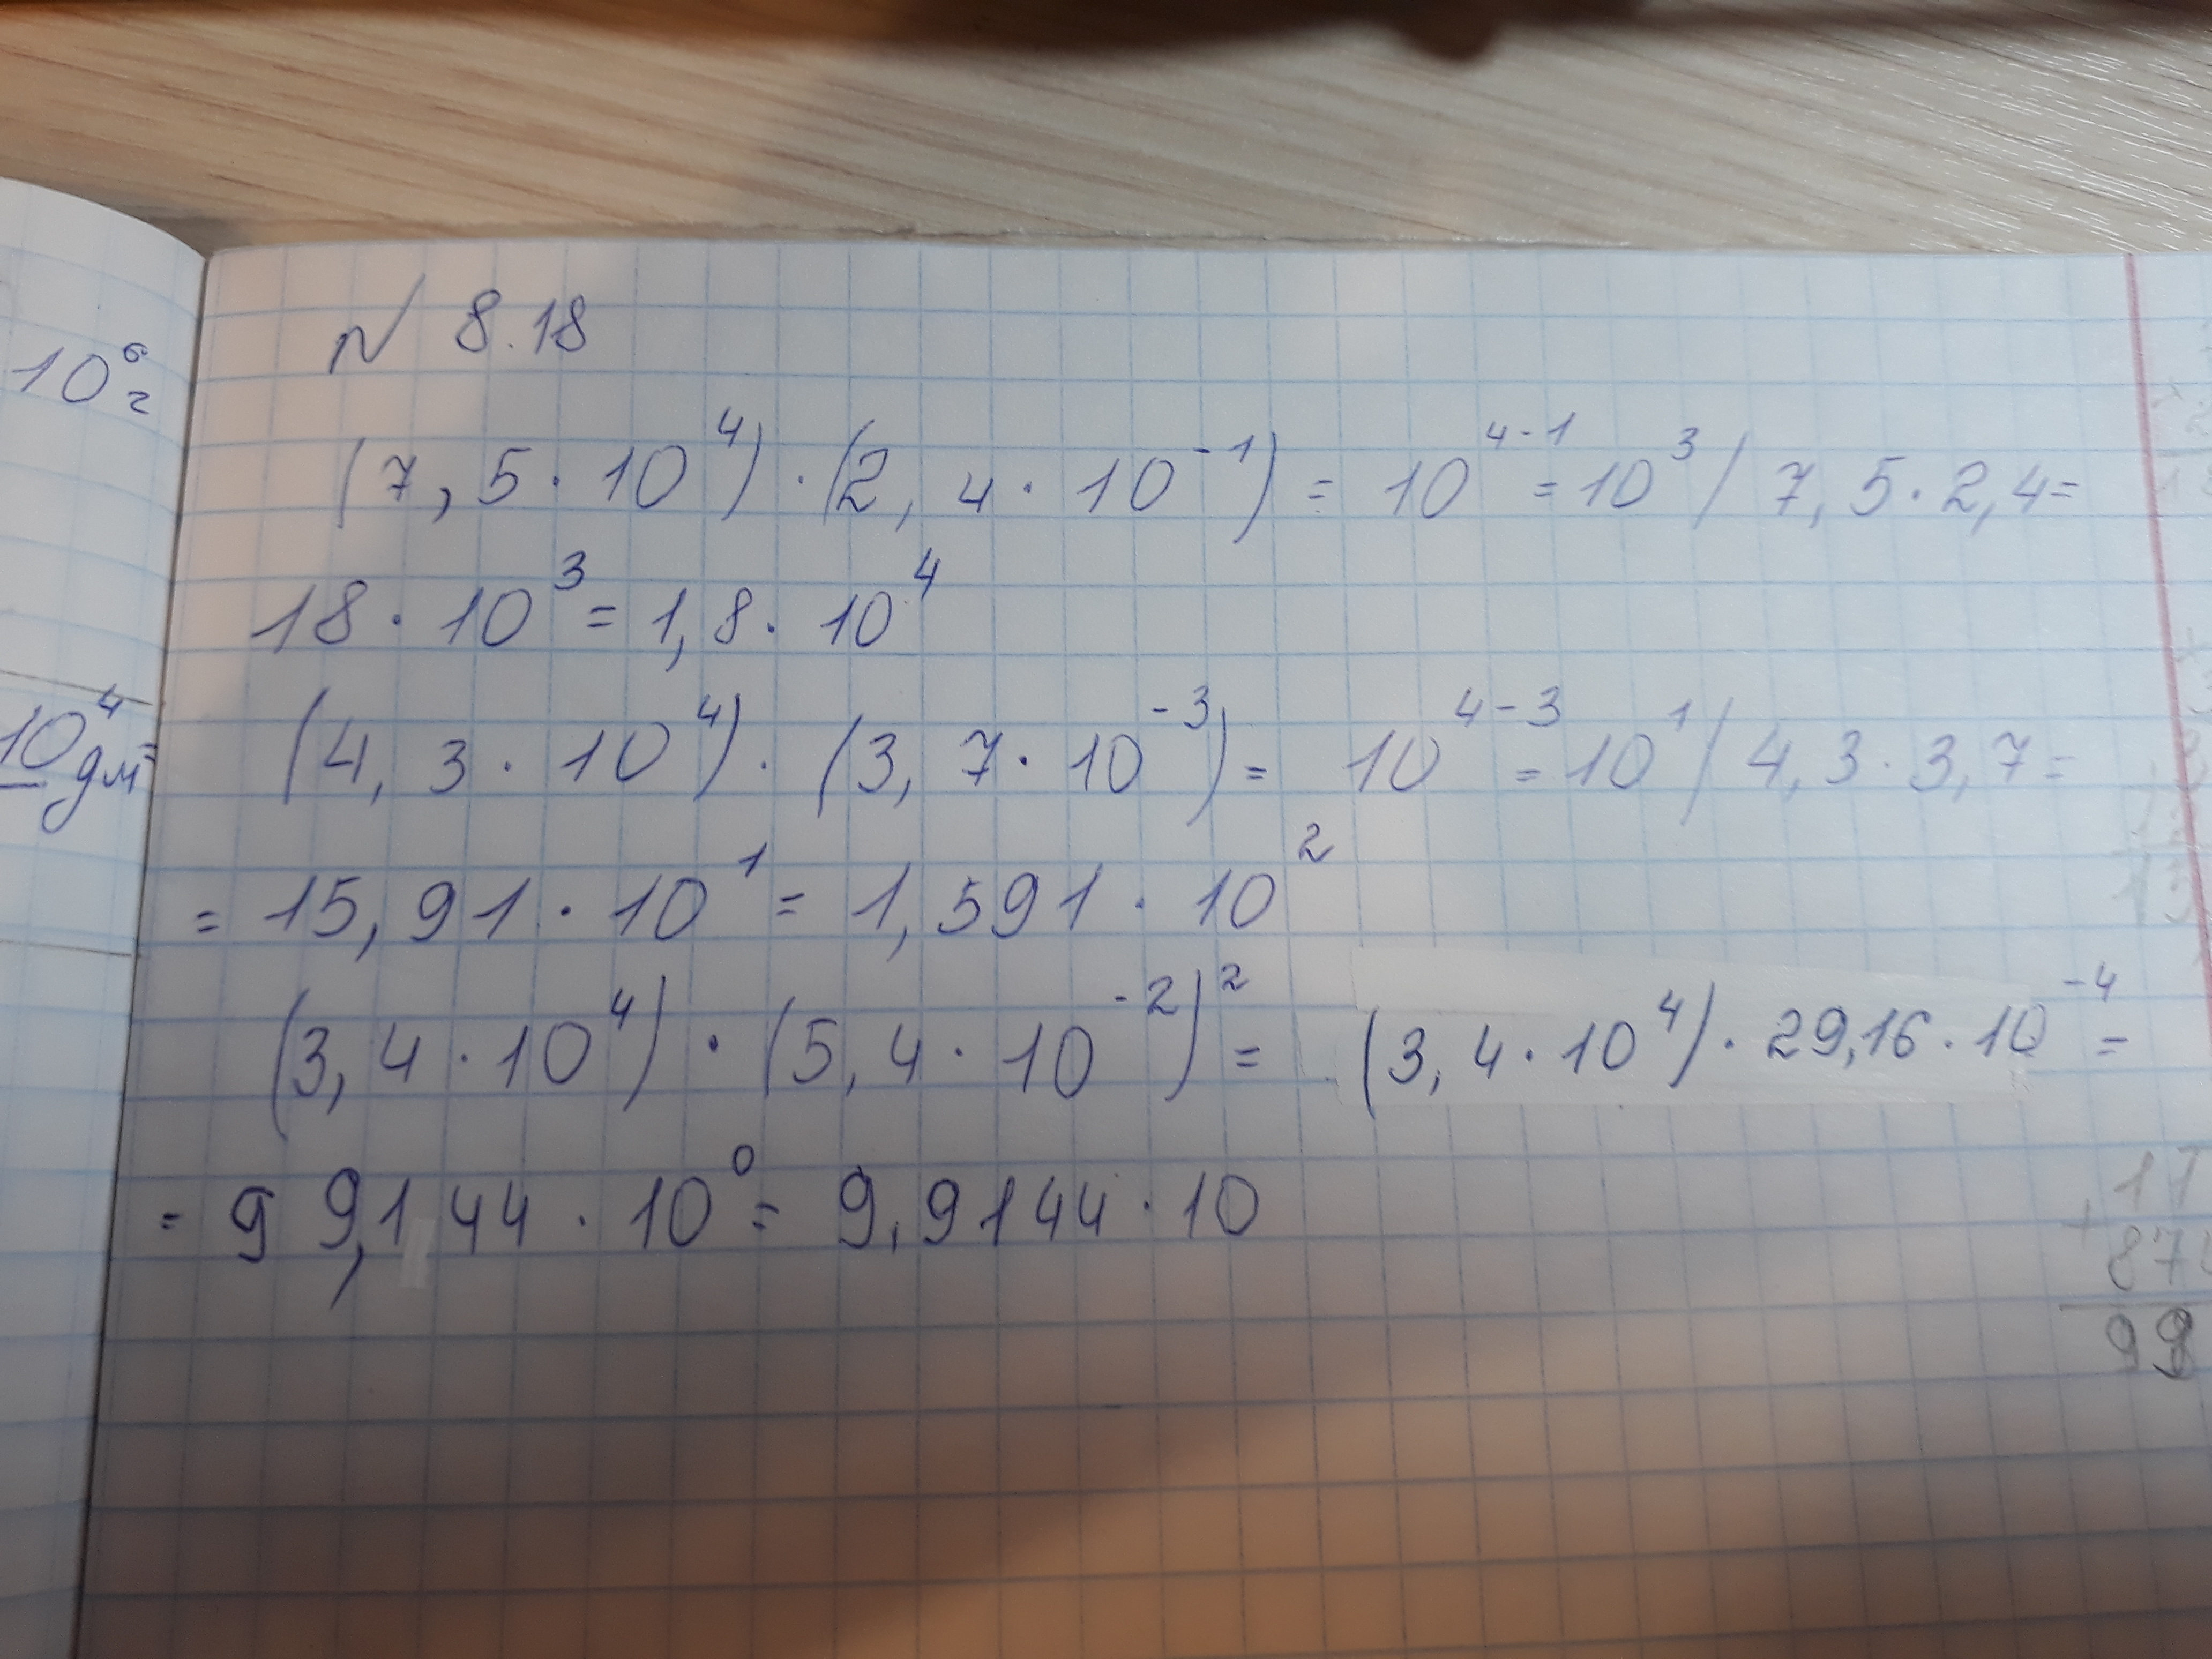 10⁶г
10⁴дм=
N 8.18
(7,5·10⁴)·(2,4·10⁻¹)= 10⁴⁻¹=10³/7,5·2,4=
18·10³=1,8·10⁴
(4,3·10⁴)·(3,7·10⁻³)= 10⁴⁻³=10¹/4,3·3,7=
=15,91·10¹=1,591·10²
(3,4·10⁴)·(5,4·10⁻²)²= (3,4·10⁴)·29,16·10⁻⁴=
=99,144·10⁰=9,9144·10
11
+
87
99